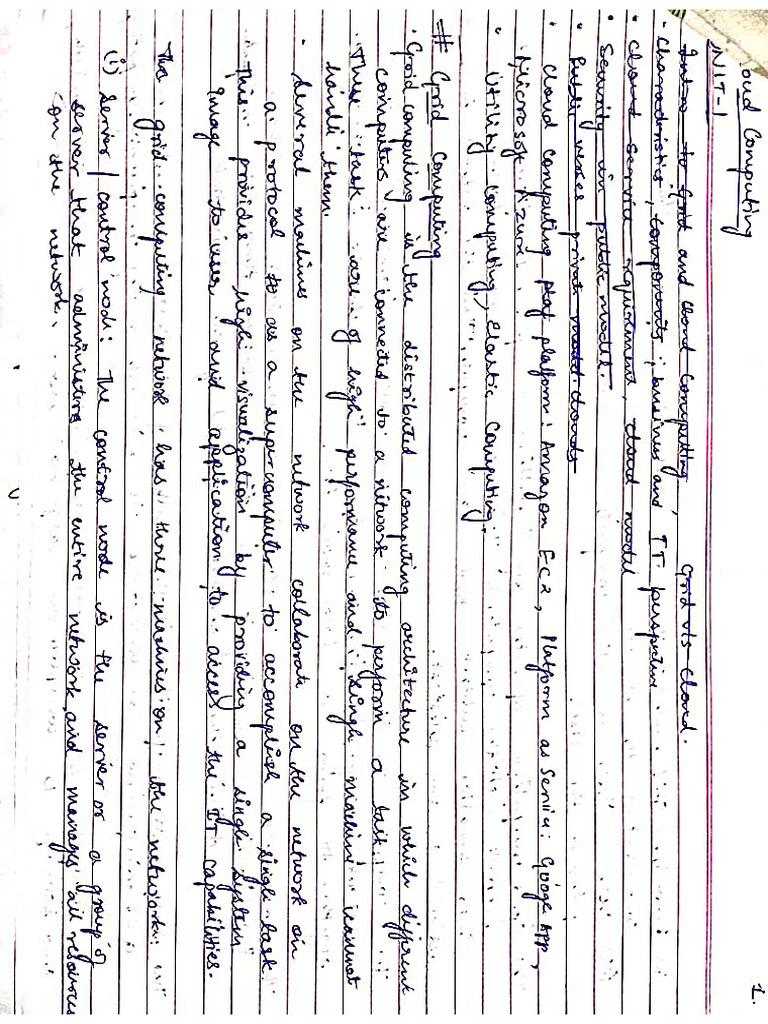 1.
oud Computing
UNIT-1
Intro to Grid and Cloud Computing, Grid v/s Cloud.
· Characteristics, components, business and IT perspective
· Cloud service requirement, cloud model
· Security in public model.
· Public verses private model clouds
· Cloud computing plat platform: Amazon EC2, Platform as Service: Google APP,
Microsoft Azure.
· Utility Computing, Elastic Computing.
# Grid Computing
· Grid computing is the distributed computing architecture in which different
computers are connected to a network to perform a task.
· These task are of high performance and single machine cannot
handle them.
· Several machines on the network collaborate on the network on
a protocol to as a supercomputer to accomplish a single task.
· This provides high visualization by providing a single system
image to user and application to access the IT capabilities.
The grid computing network has three machines on the network.
(i) Server / control node: The control node is the server or a group of
server that administers the entire network and manages all resources
on the network.